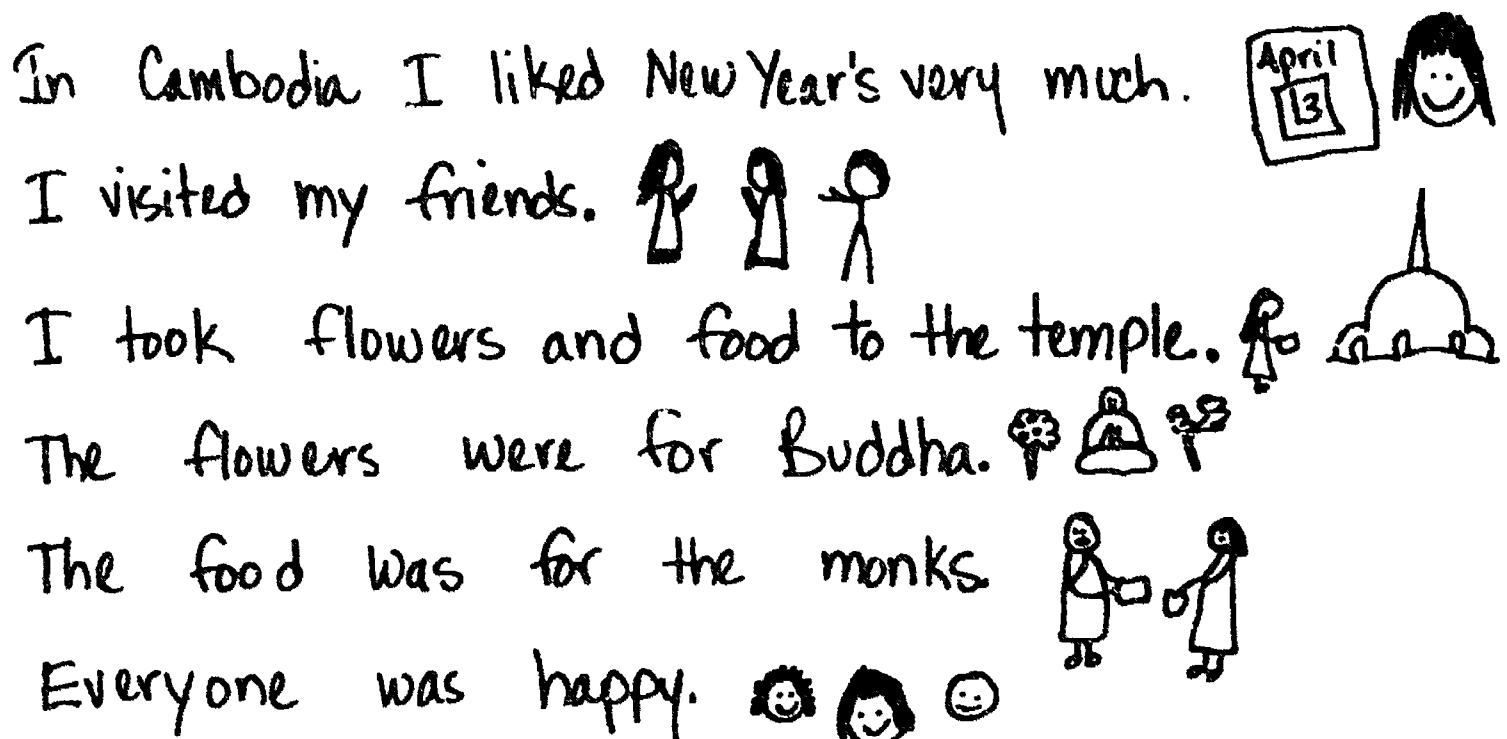 In Cambodia I liked New Year's very much.
April
13
I visited my friends.
I took flowers and food to the temple.
The flowers were for Buddha.
The food was for the monks.
Everyone was happy.